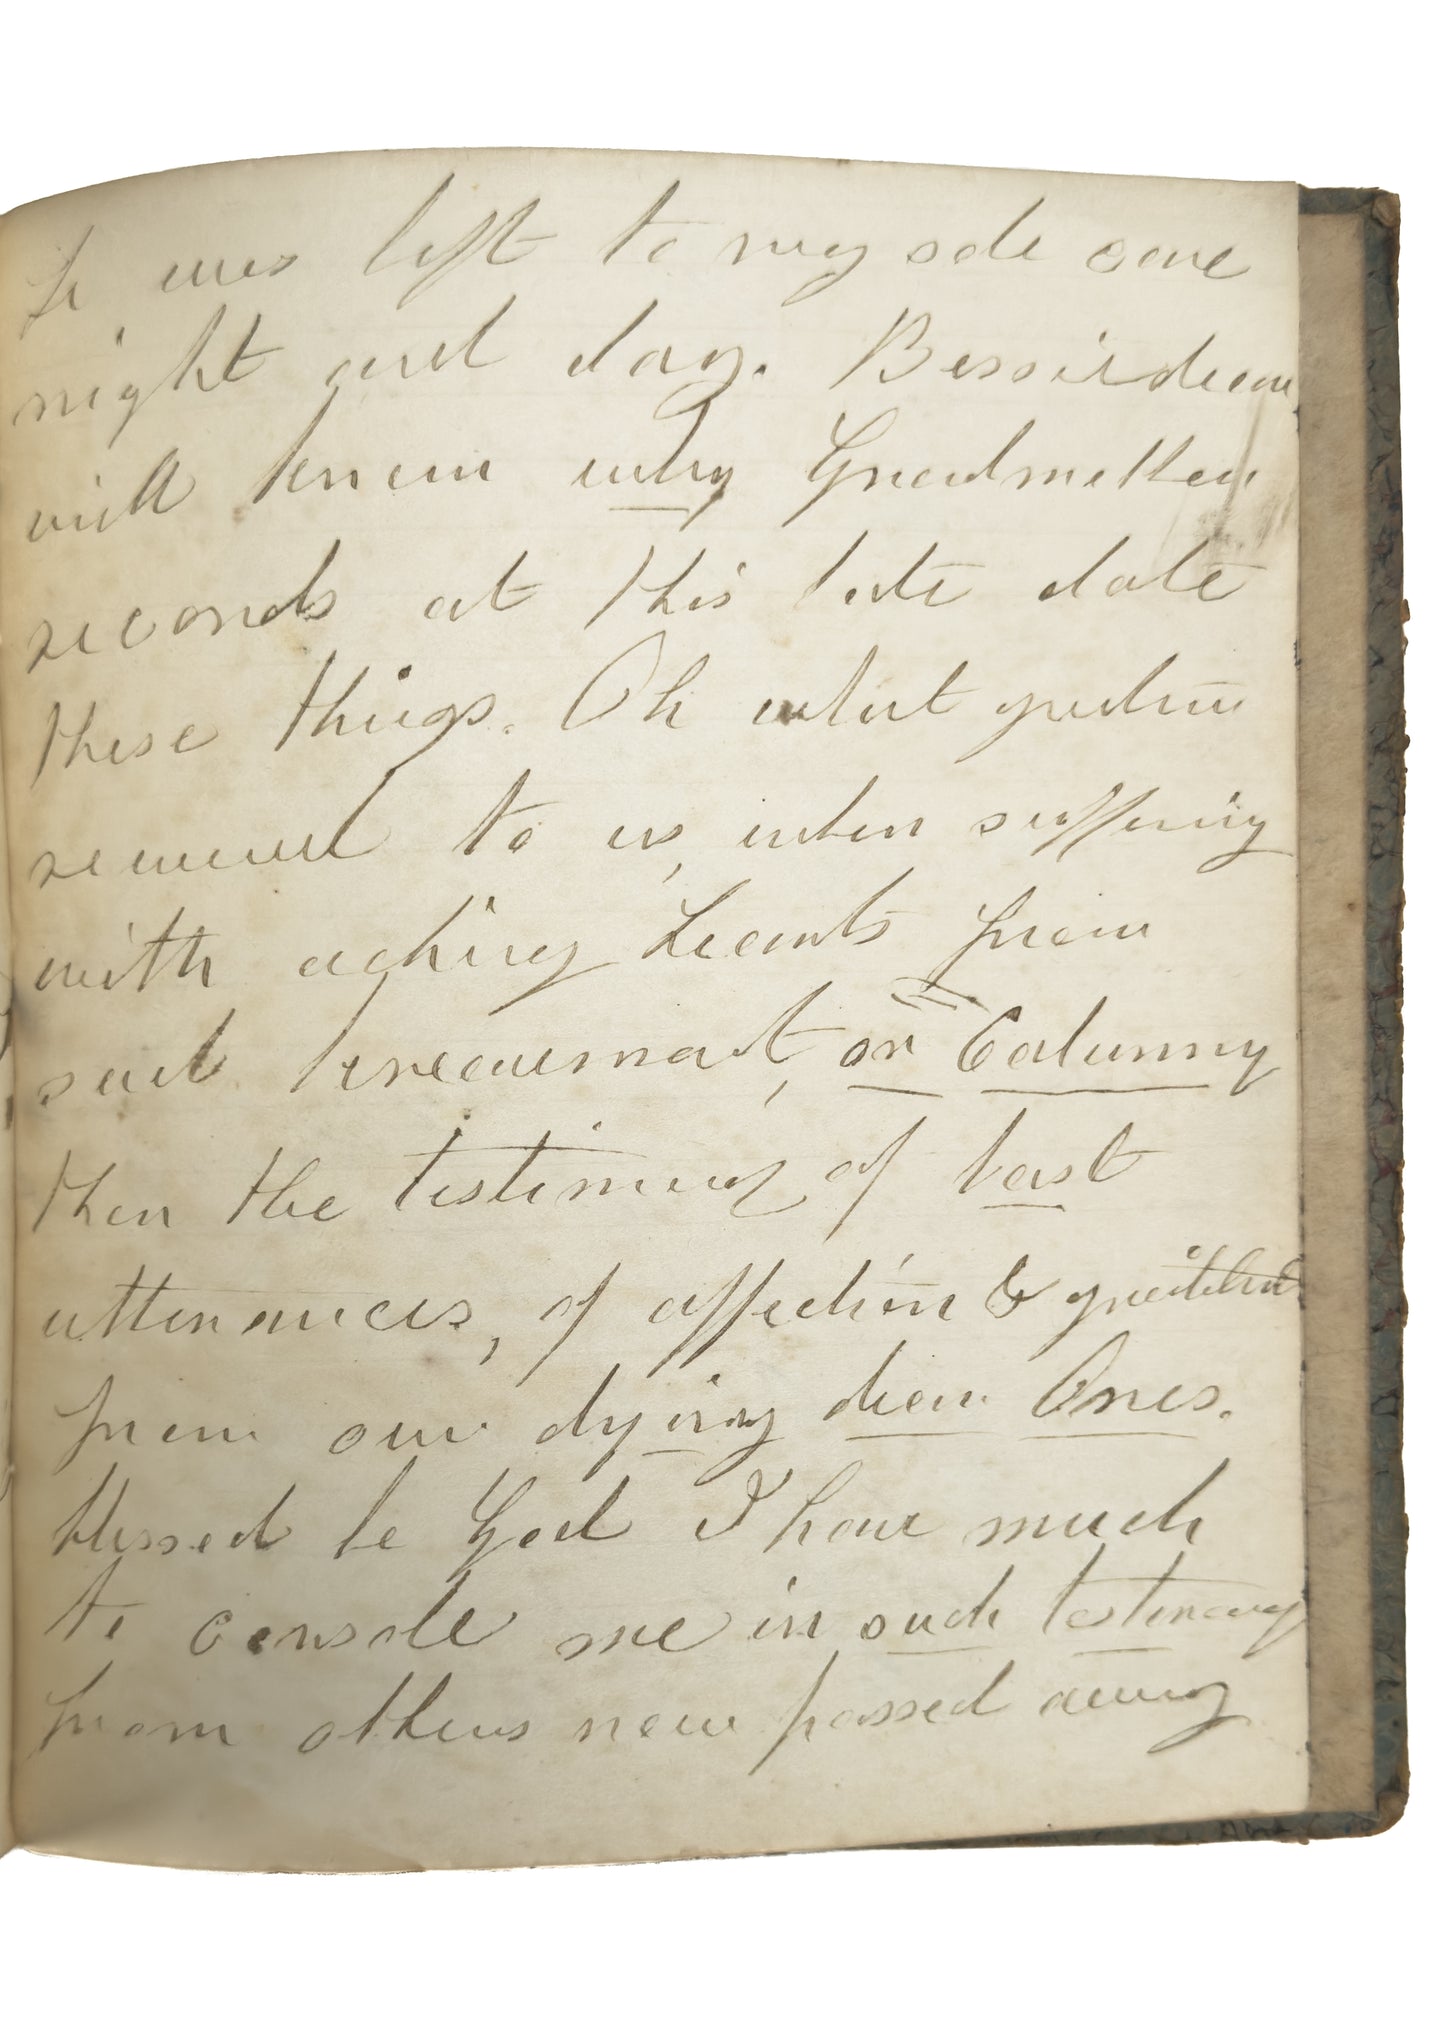 He was left to my sole care
night and day. Bessie dear
will know why Grandmother
records at this late date
these things. Oh what greater
reward to us, when suffering
with aching hearts from
sad bereavement, or Calumny
then the testimony of last
utterances, of affection & gratitude
from our dying dear Ones.
blessed be God I have much
to console me in such testimony
from others now passed away